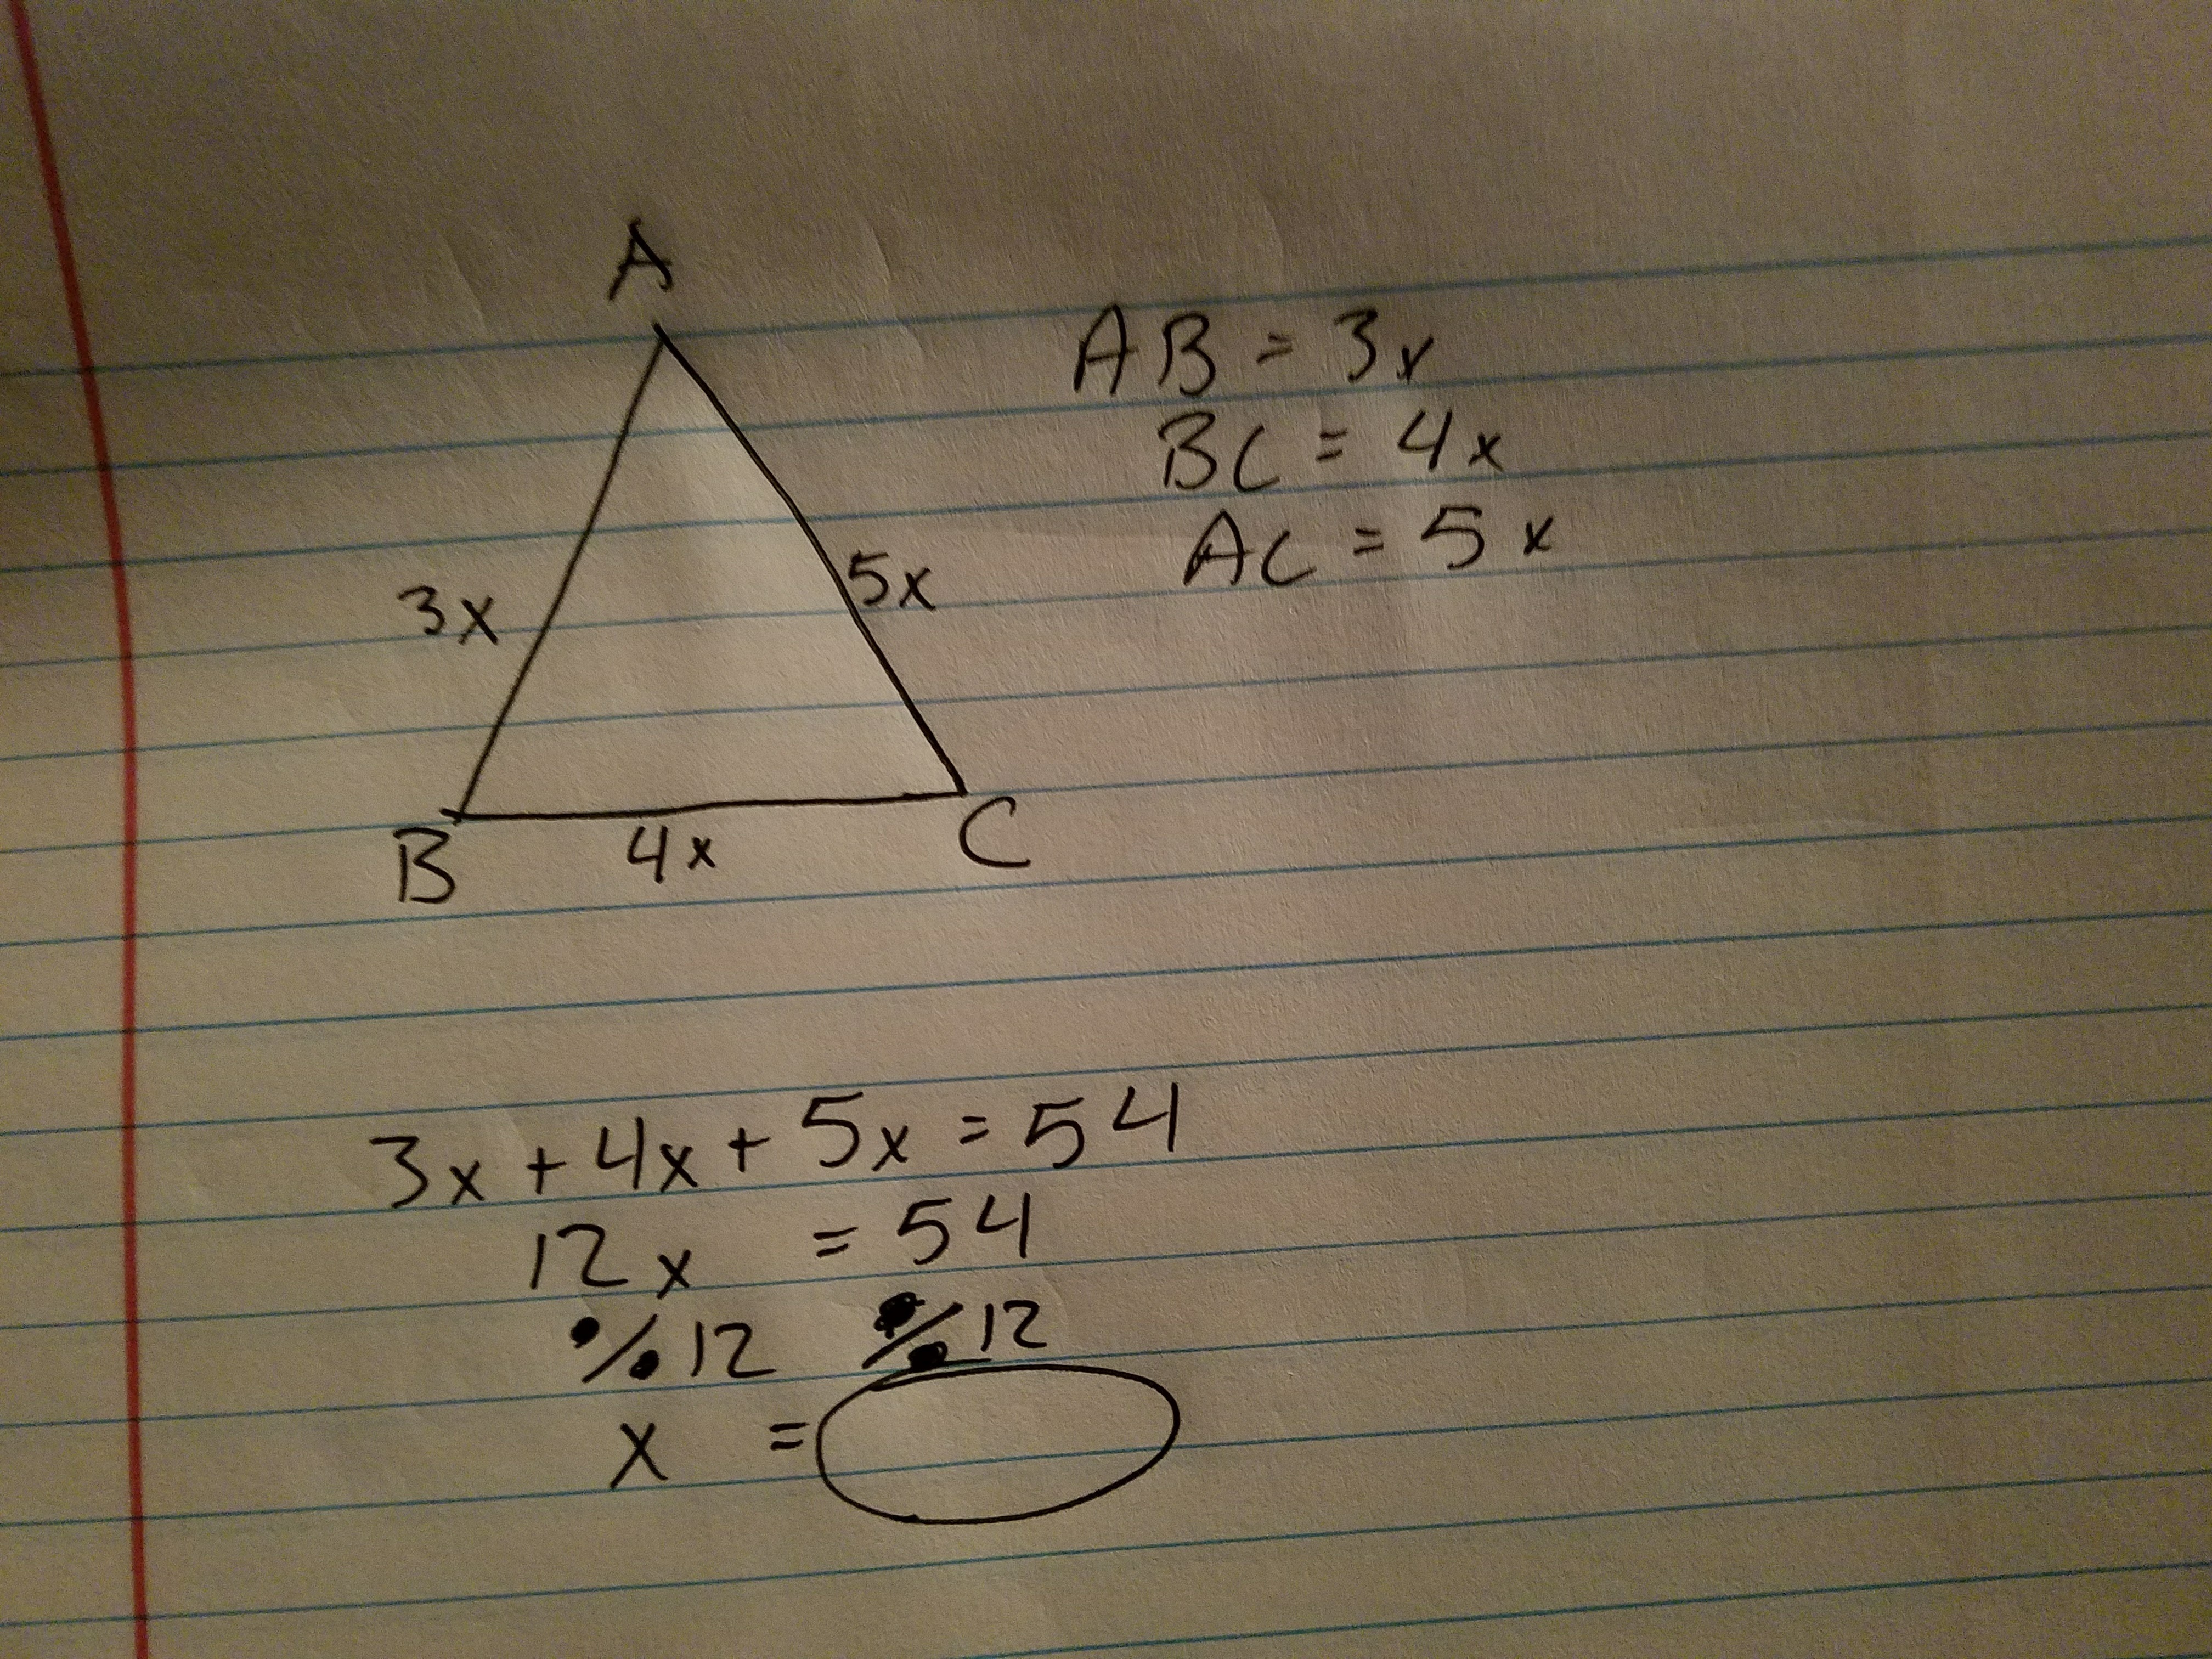 A
AB = 3x
BC = 4x
AC = 5x
3x
5x
B
4x
C
3x + 4x + 5x = 54
12x = 54
÷12 ÷12
x =